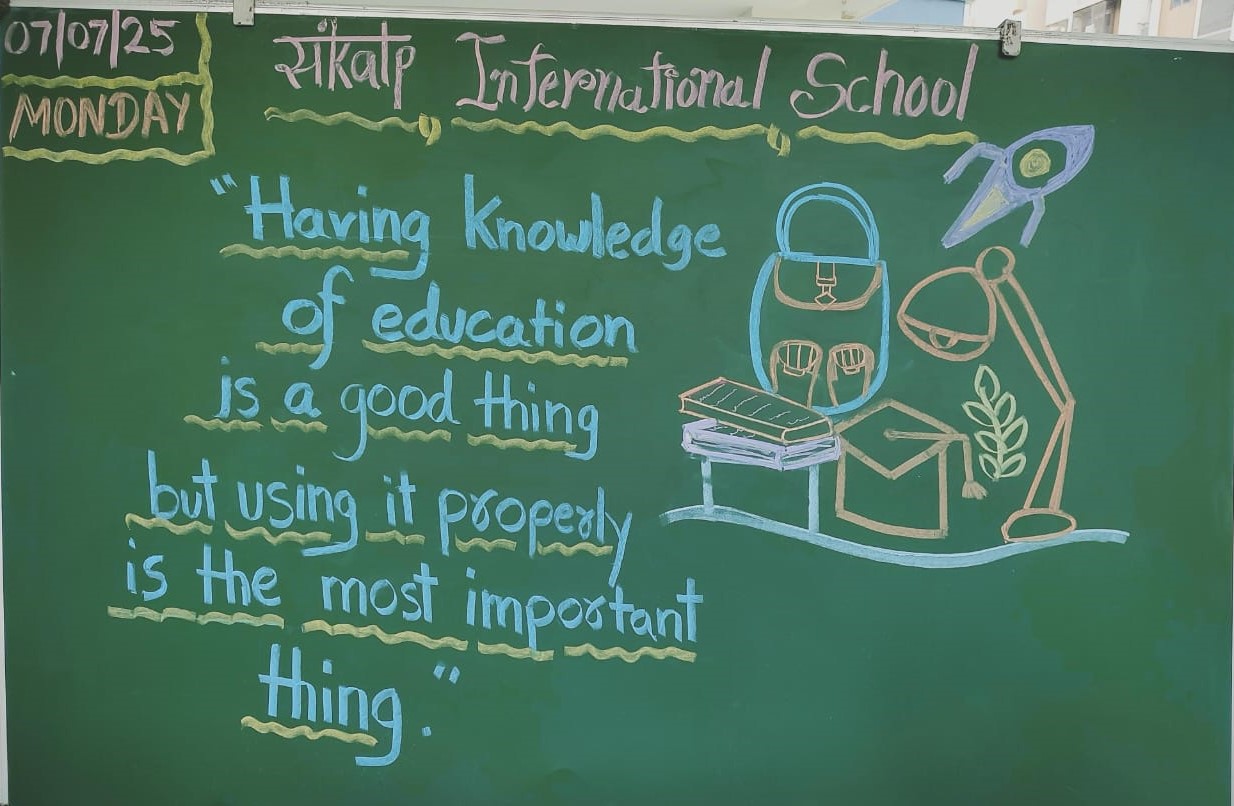 07/07/25
MONDAY
संkalp International School
"Having knowledge
of education
is a good thing
but using it properly
is the most important
thing."